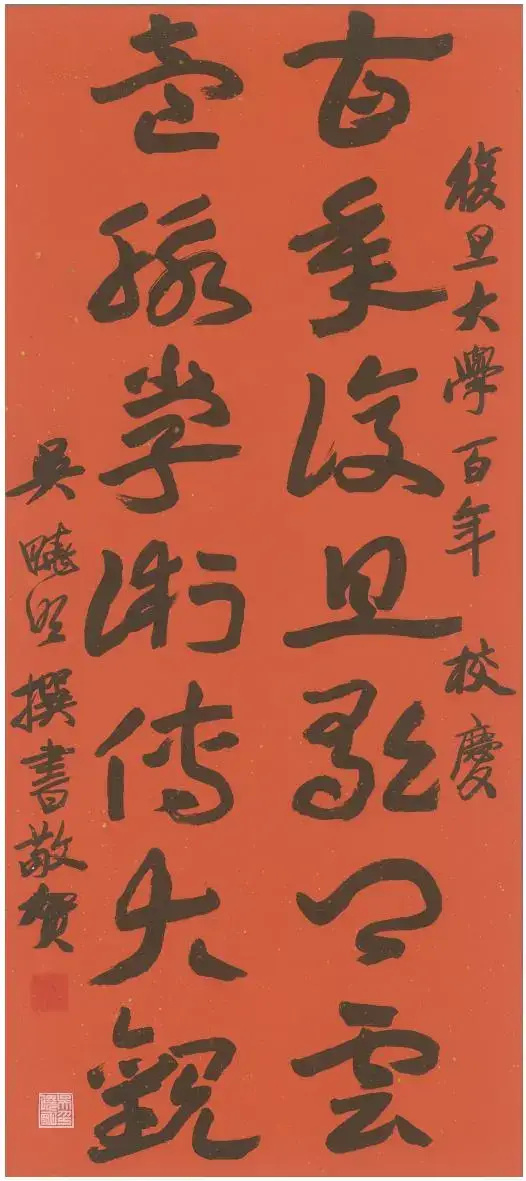 復旦大學百年 校慶
百年復旦歌卿雲
壹脈學術傳大觀
吳曉明撰書敬賀